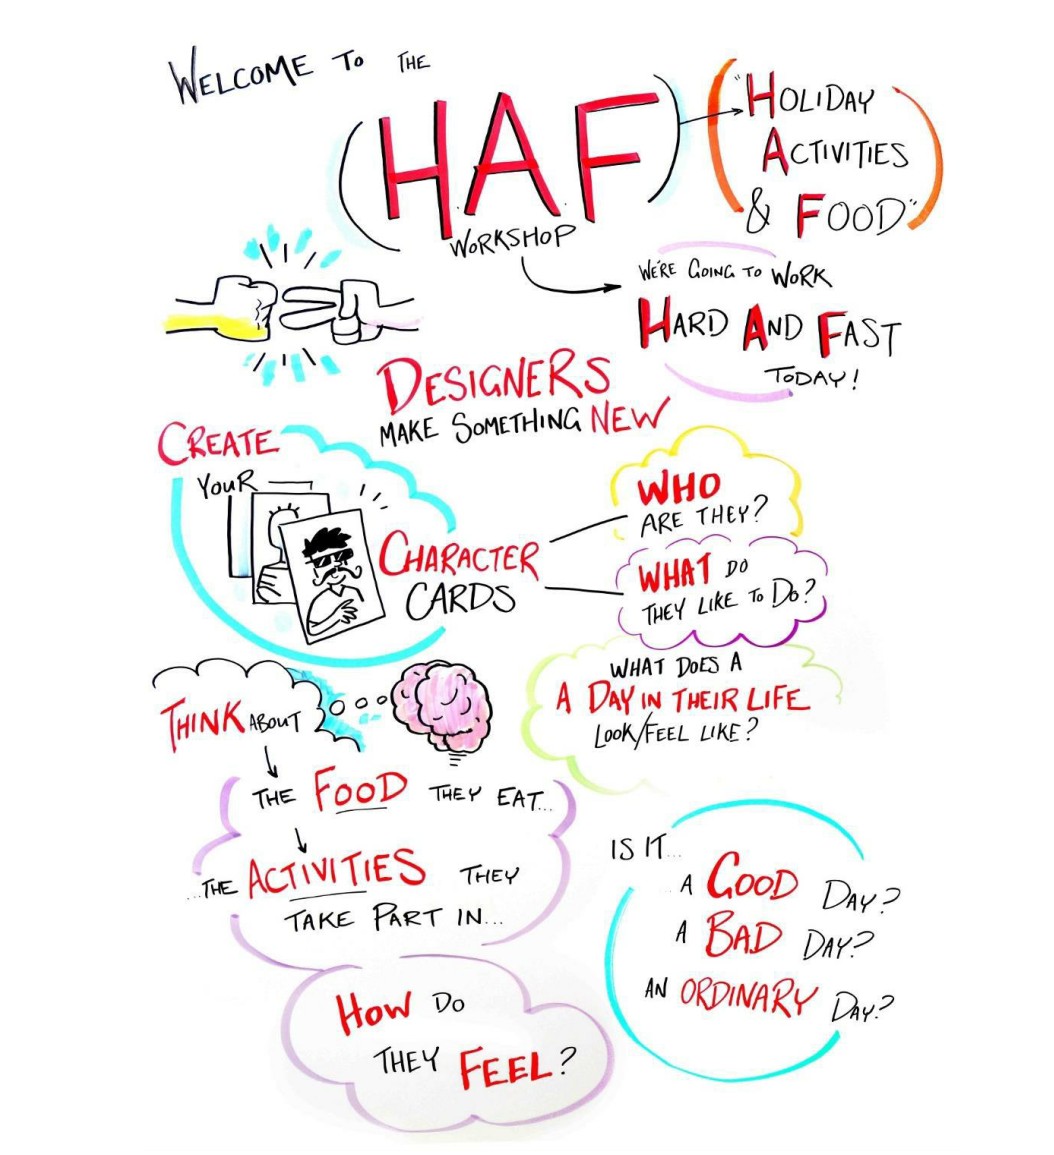 WELCOME TO THE
(H.A.F)
WORKSHOP
("HOLIDAY
ACTIVITIES
& FOOD")
WE'RE GOING TO WORK
HARD AND FAST
TODAY!
DESIGNERS
MAKE SOMETHING NEW
CREATE
YOUR
CHARACTER
CARDS
WHO
ARE THEY?
WHAT DO
THEY LIKE TO DO?
WHAT DOES A
A DAY IN THEIR LIFE
LOOK/FEEL LIKE?
THINK ABOUT
THE FOOD THEY EAT...
...THE ACTIVITIES THEY
TAKE PART IN...
HOW DO
THEY FEEL?
IS IT...
A GOOD DAY?
A BAD DAY?
AN ORDINARY DAY?